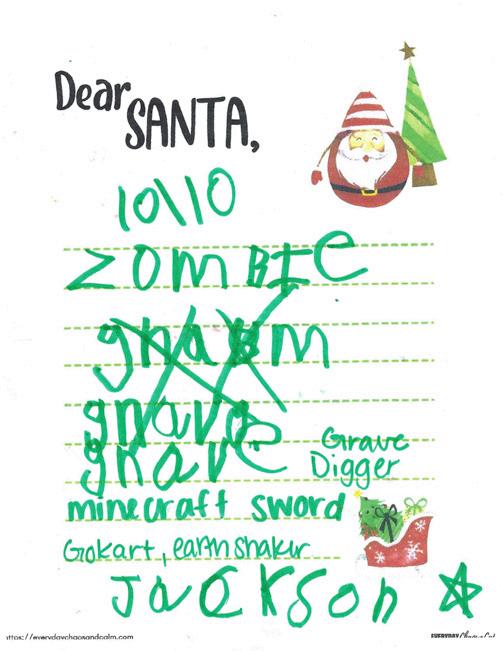 Dear SANTA,
10\10
ZOMBIE
grave
Grave
Digger
minecraft sword
Gokart, earth shaker
JacKson
ttps://everydaychaosandcalm.com
EVERYDAY